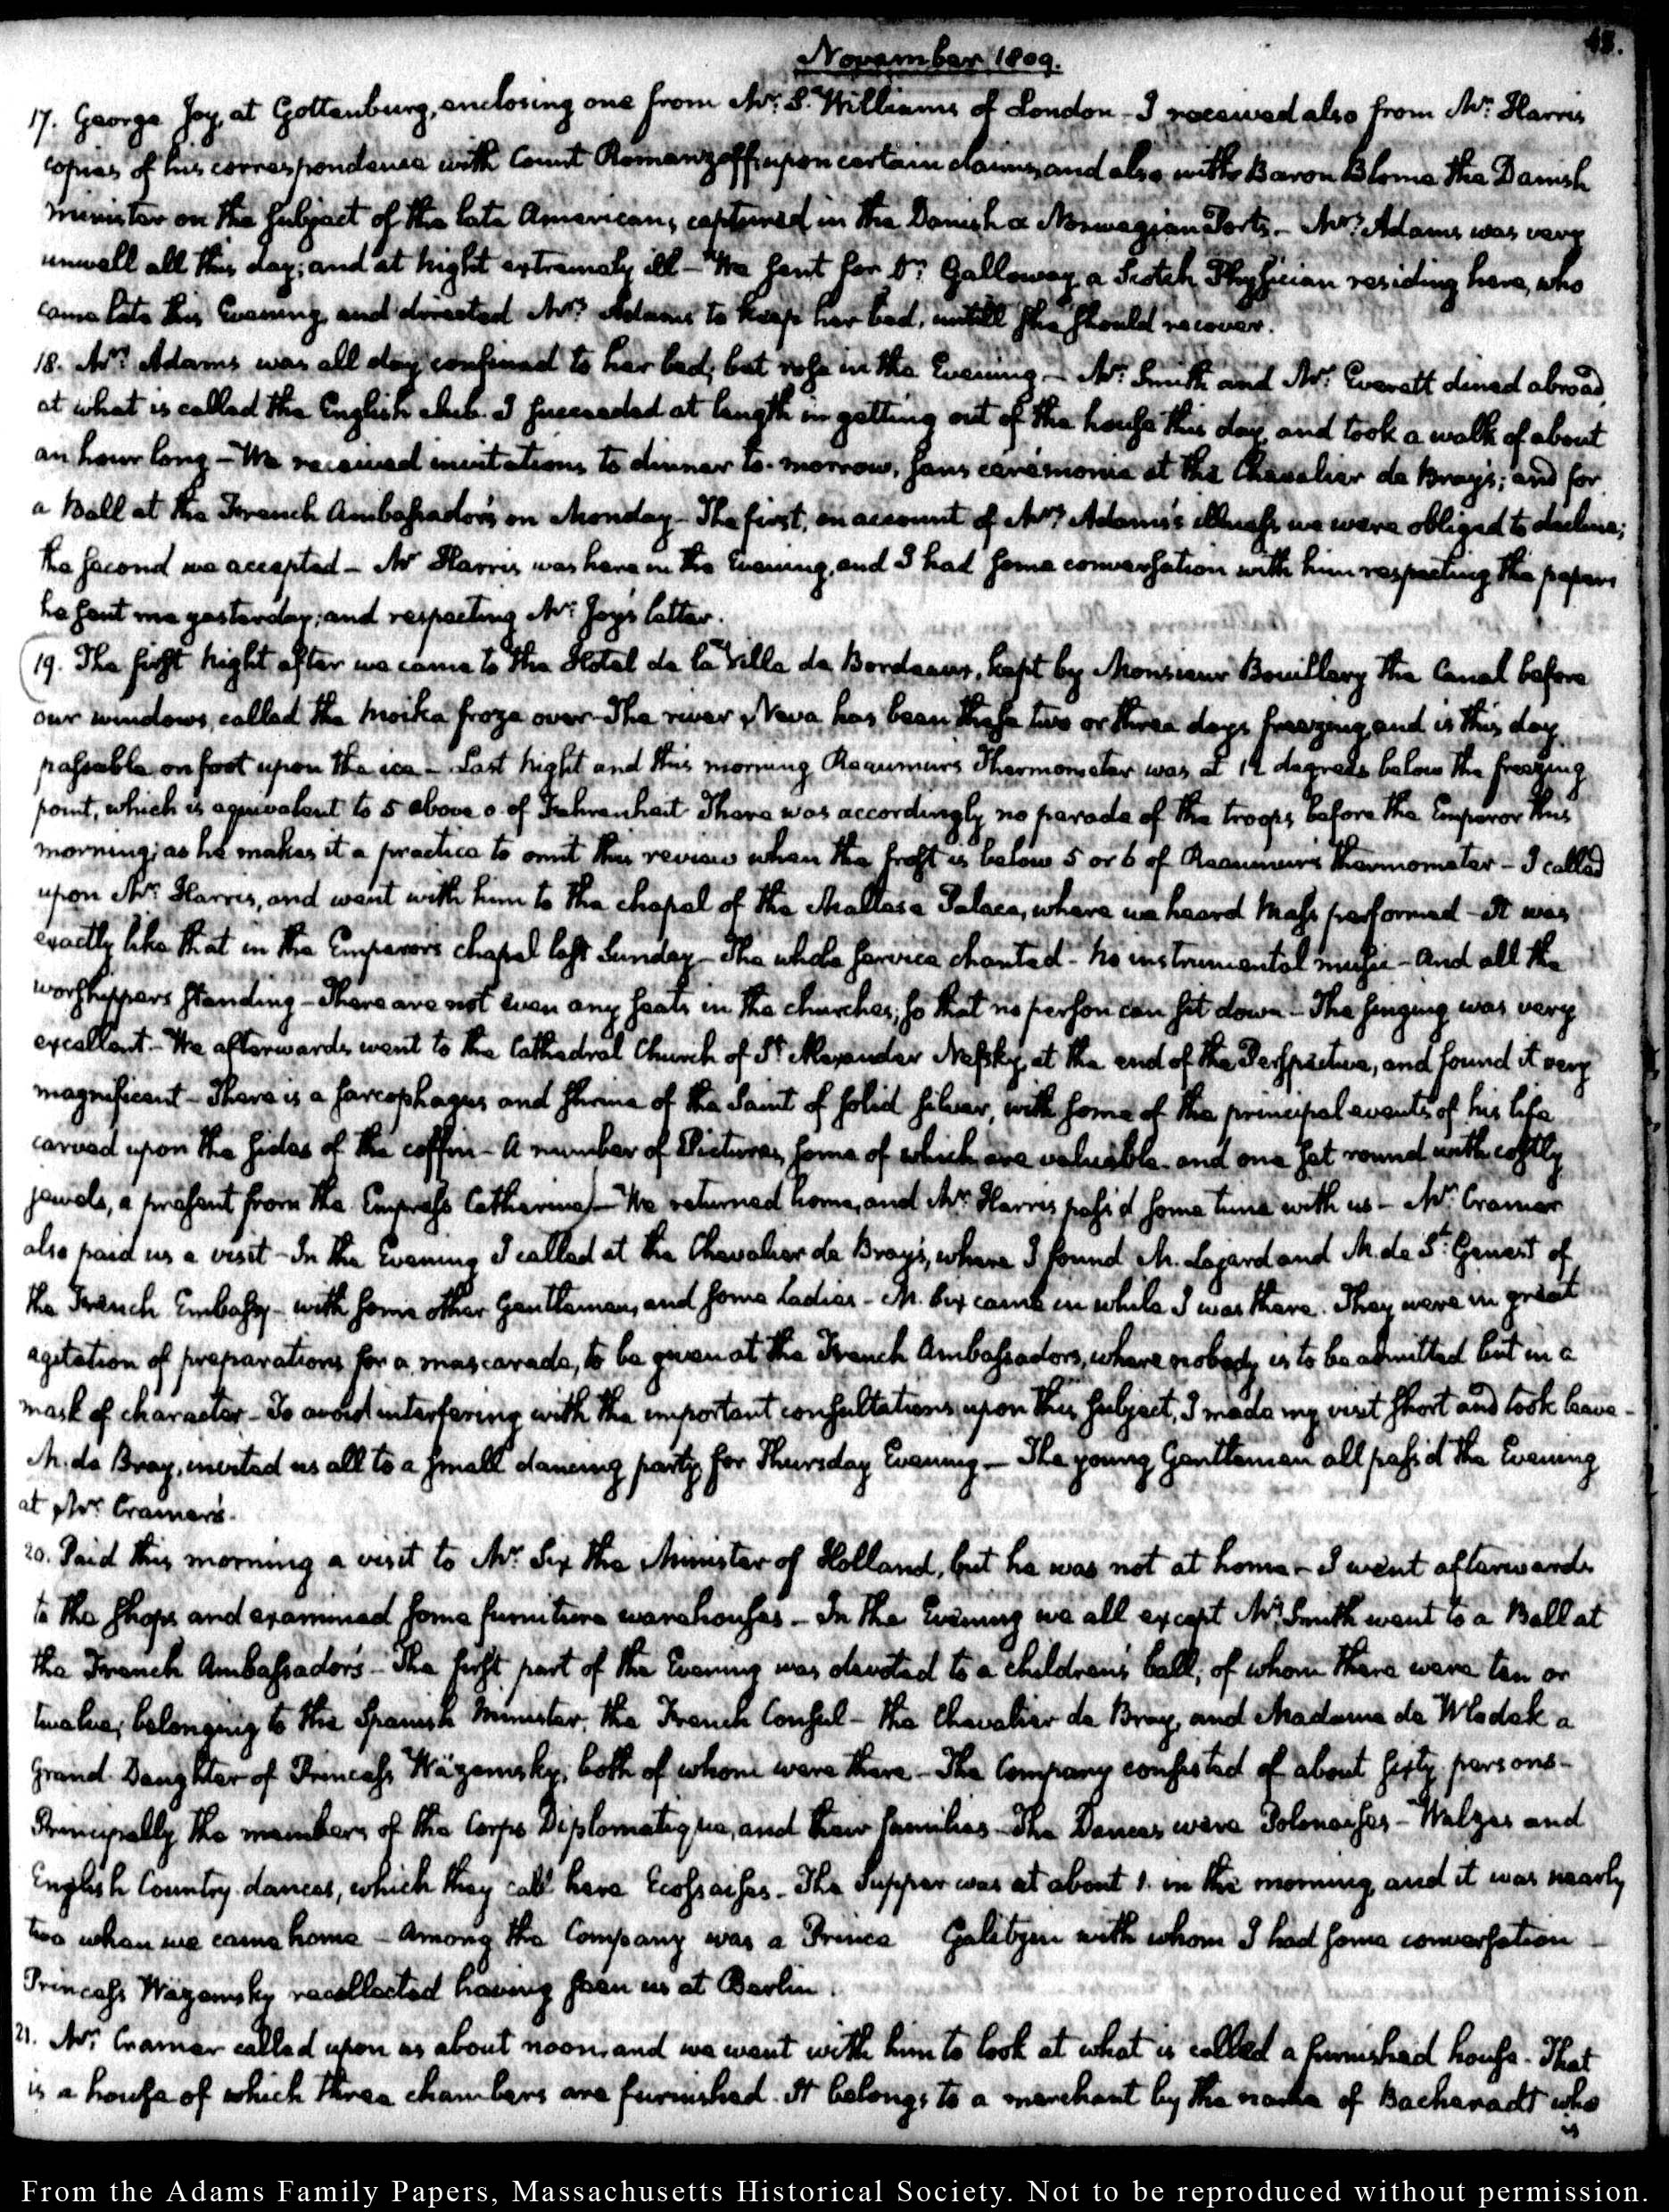 November 1809.
48.
17. George Joy, at Gottenburg, enclosing one from Mr. S. Williams of London - I received also from Mr. Harris
copies of his correspondence with Count Romanzoff, upon certain claims, and also with Baron Blome the Danish
minister on the subject of the late Americans captured in the Danish & Norwegian Ports. - Mrs. Adams was very
unwell all this day; and at night extremely ill - We sent for Dr. Galloway, a Scotch Physician residing here, who
came late this Evening, and directed Mrs. Adams to keep her bed, untill she should recover.
18. Mrs. Adams was all day confined to her bed; but rose in the Evening. - Mr. Smith and Mr. Everett dined abroad,
at what is called the English club. I succeeded at length in getting out of the house this day, and took a walk of about
an hour long - We received invitations to dinner to-morrow, sans ceremonie at the Chevalier de Bray's; and for
a Ball at the French Ambassador's on Monday - The first, on account of Mrs. Adams's illness we were obliged to decline;
the second we accepted - Mr Harris was here in the Evening, and I had some conversation with him respecting the papers
he sent me yesterday; and respecting Mr. Joy's letter.
19. The first night after we came to the Hotel de la Ville de Bordeaux, kept by Monsieur Bouillery the Canal before
our windows, called the Moika froze over - The river Neva has been these two or three days freezing, and is this day
passable on foot upon the ice - Last night and this morning Reaumur's Thermometer was at 12 degrees below the freezing
point, which is equivalent to 5 above 0 of Fahrenheit. There was accordingly no parade of the troops before the Emperor this
morning; as he makes it a practice to omit this review when the frost is below 5 or 6 of Reaumur's thermometer - I called
upon Mr. Harris, and went with him to the chapel of the Maltese Palace, where we heard Mass performed - It was
exactly like that in the Emperor's chapel last Sunday - The whole service chanted - no instrumental music - And all the
worshippers standing - There are not even any seats in the churches; so that no person can sit down - The singing was very
excellent - We afterwards went to the Cathedral Church of St. Alexander Nefsky, at the end of the Perspective, and found it very
magnificent - There is a sarcophagus and shrine of the Saint of solid silver, with some of the principal events of his life
carved upon the sides of the coffin - A number of Pictures, some of which are valuable. and one set round with costly
jewels, a present from the Empress Catherine) - We returned home, and Mr. Harris pass'd some time with us - Mr. Cramer
also paid us a visit - In the Evening I called at the Chevalier de Bray's, where I found M. Lajard and M. de St. Genest of
the French Embassy - with some other Gentlemen, and some Ladies - M. Six came in while I was there. They were in great
agitation of preparations for a mascarade, to be given at the French Ambassadors, where nobody is to be admitted but in a
mask of character - To avoid interfering with the important consultations upon this subject, I made my visit short and took leave -
M. de Bray, invited us all to a small dancing party for Thursday Evening. - The young Gentlemen all pass'd the Evening
at Mr. Cramer's.
20. Paid this morning a visit to Mr. Six the Minister of Holland, but he was not at home - I went afterwards
to the shops and examined some furniture warehouses - In the Evening we all except Mr. Smith went to a Ball at
the French Ambassador's - The first part of the Evening was devoted to a children's ball; of whom there were ten or
twelve; belonging to the Spanish Minister, the French Consul - the Chevalier de Bray, and Madame de Wlodek a
Grand Daughter of Princess Wäzemsky; both of whom were there - The Company consisted of about sixty persons -
Principally the members of the Corps Diplomatique, and their families - The Dances were Polonaises - Walzes and
English Country dances, which they call here Ecossaises. The Supper was at about 1. in the morning, and it was nearly
two when we came home - Among the Company was a Prince Galitzin with whom I had some conversation -
Princess Wäzemsky recollected having seen us at Berlin.
21. Mr. Cramer called upon us about noon, and we went with him to look at what is called a furnished house. That
is a house of which three chambers are furnished. It belongs to a merchant by the name of Bacheradt who
is
From the Adams Family Papers, Massachusetts Historical Society. Not to be reproduced without permission.